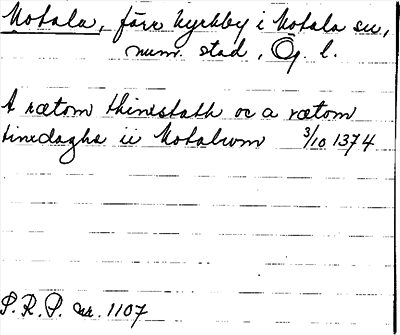 Motala, förr kyrkby i Motala sn,
num. stad, Ög. l.
A rætom thinxstath oc a rætom
tinxdaghe ii Motalum 3/10 1374
P.R.P. nr. 1107